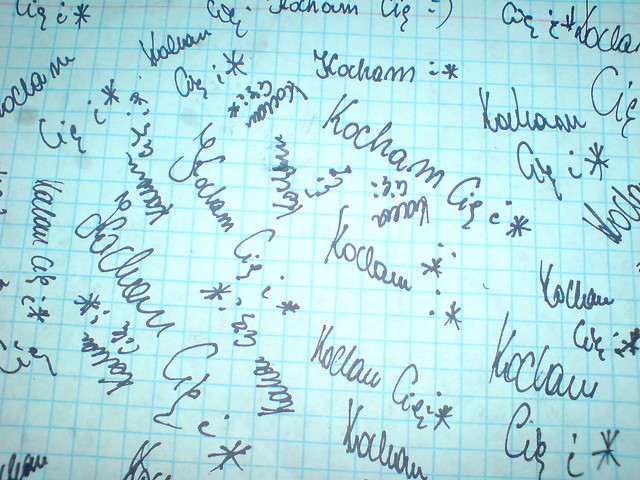 Cię i *
Cię. Kocham Cię =)
Cię i *
Kocham
Kocham
Cię i *
Kocham i *
Kocham
Cię i *
Kocham
Cię i *
Kocham
Cię i *
Kocham
Cię
Kocham
Cię i *
Kocham
Cię i *
Kocham
Cię i *
Kocham
Cię i *
Kocham
Cię
Kocham Cię i *
Kocham
Cię i *
Kocham
i *
Kocham
Cię i *
Kocham
Cię i *
Kocham
Cię i *
Kocham Cię i *
Kocham
Cię i *
Kocham